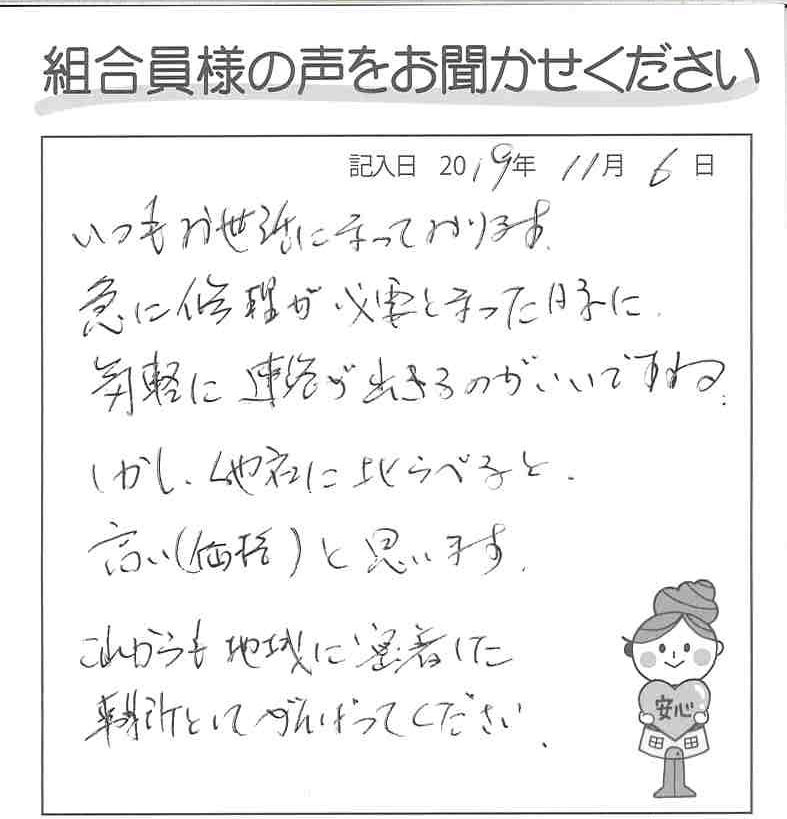 組合員様の声をお聞かせください
記入日 2019年 11月 6日
いつもお世話になっております。
急に修理が必要となった時に、
気軽に連絡が出きるのがいいですね。
しかし、他社に比らべると、
高い(価格)と思います。
これからも地域に密着した
事務所としてがんばってください。
安心